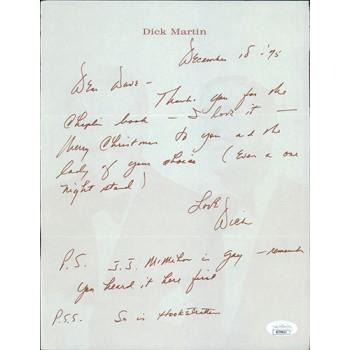 Dick Martin
December 18 '75
Dear Dave -
Thank you for the
Chaplin book - I love it -
Merry Christmas to you and the
lady of your choice (Even a one
night stand)
Love
Dick
P.S. J.J. McMahon is gay - remember
you heard it here first
P.S.S. So is
JSA